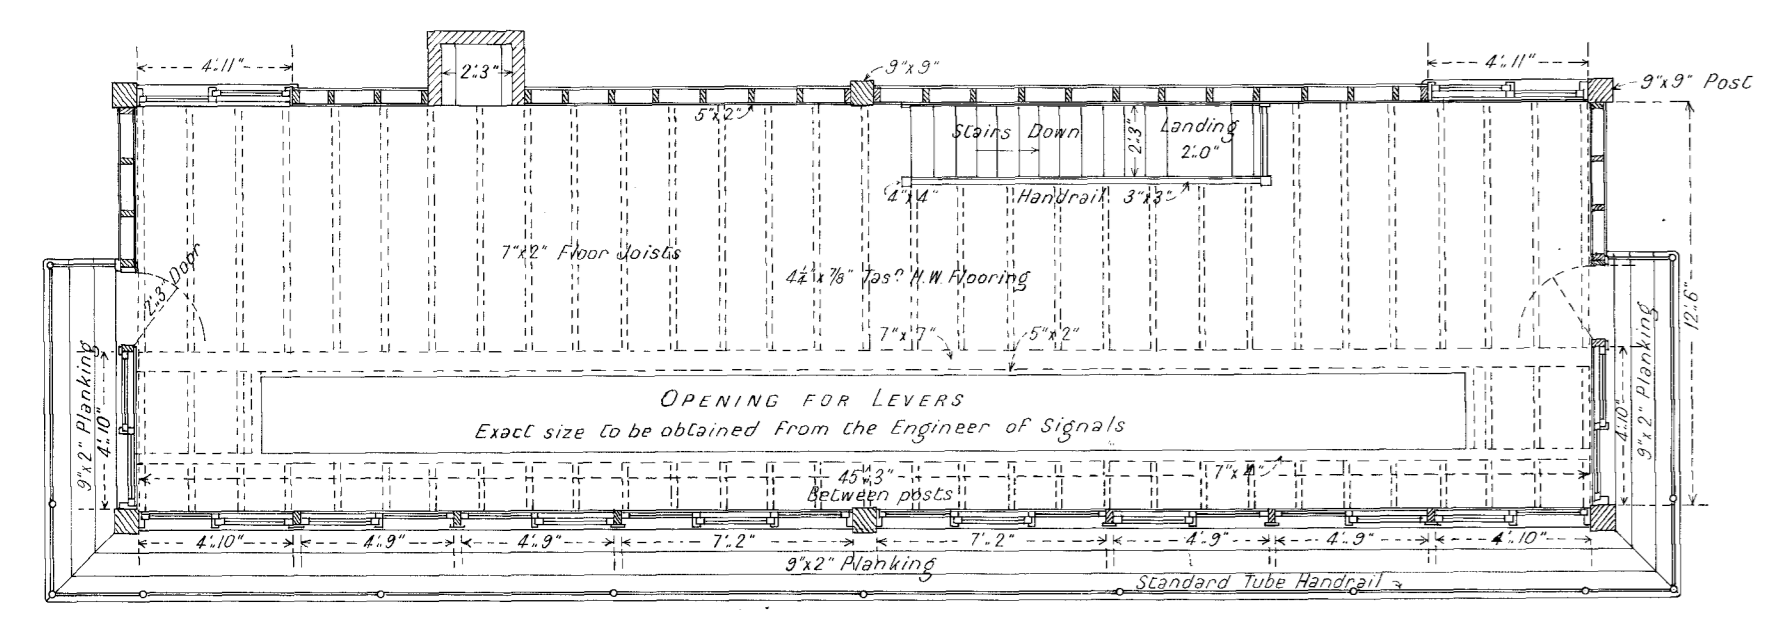 4'.11"
2'.3"
9"x9"
4'.11"
9"x9" Post
5"x2"
Stairs Down
2'.3"
Landing
2'.0"
4"x4"
Handrail 3"x3"
2'.3" Door
7"x2" Floor Joists
4¼"x⅞" Tasⁿ H.W. Flooring
12'.6"
7"x7"
5"x2"
9"x2" Planking
4'.10"
OPENING FOR LEVERS
Exact size to be obtained from the Engineer of Signals
4'.10"
9"x2" Planking
45'.3"
Between posts
7"x4"
4'.10"
4'.9"
4'.9"
7'.2"
7'.2"
4'.9"
4'.9"
4'.10"
9"x2" Planking
Standard Tube Handrail